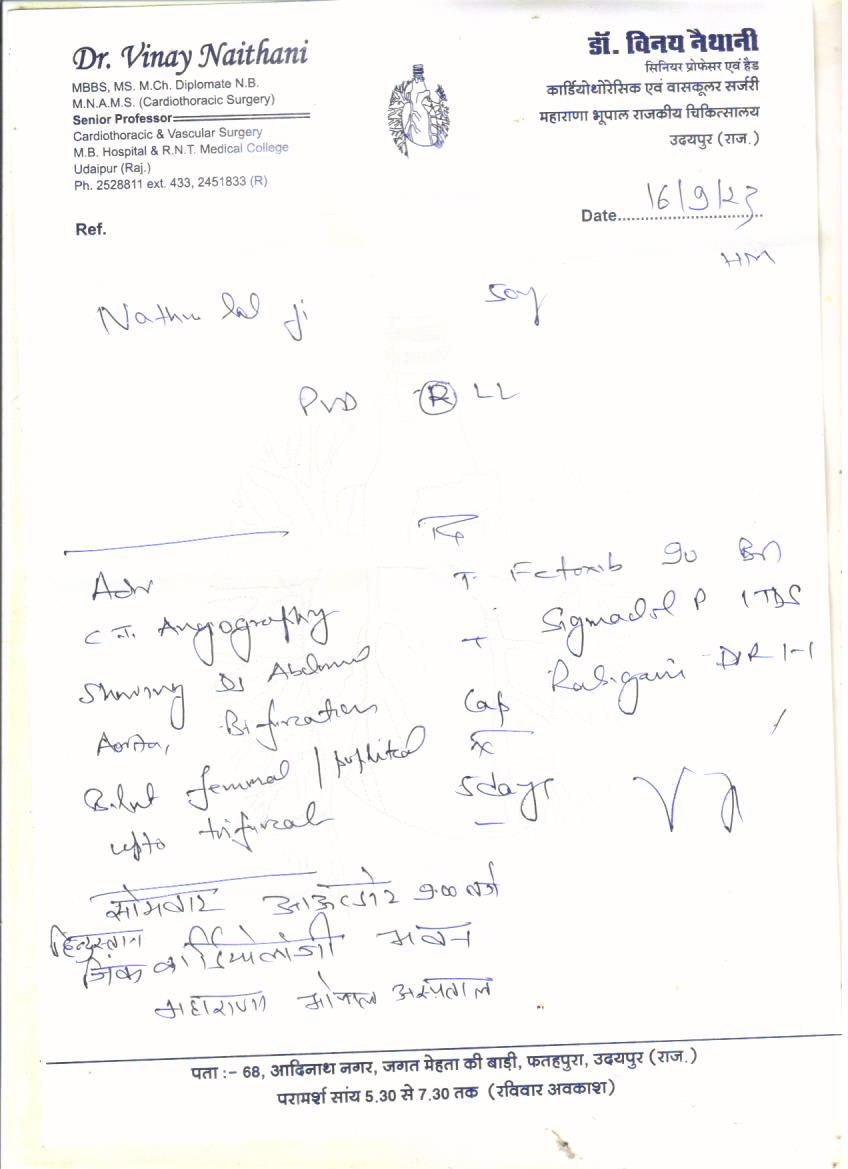 Dr. Vinay Naithani
MBBS, MS. M.Ch. Diplomate N.B.
M.N.A.M.S. (Cardiothoracic Surgery)
Senior Professor
Cardiothoracic & Vascular Surgery
M.B. Hospital & R.N.T. Medical College
Udaipur (Raj.)
Ph. 2528811 ext. 433, 2451833 (R)
डॉ. विनय नैथानी
सिनियर प्रोफेसर एवं हैड
कार्डियोथोरेसिक एवं वासकूलर सर्जरी
महाराणा भूपाल राजकीय चिकित्सालय
उदयपुर (राज.)
Date 16/9/23
Ref.
HM
Nathu lal ji 50y
PVD R LL
Adv
C.T. Angiography
Showing Abdominal
Aorta, Bifurcation
femoral / popliteal
upto
T. Etoxib 90
T Sigmadol P 1 TDS
Cap DSR 1-1
x
5 days
सोमवार आऊटडोर 9.00 बजे
हिन्दुस्तान
जिंक कार्डियोलोजी भवन
महाराणा भोपाल अस्पताल
पता :– 68, आदिनाथ नगर, जगत मेहता की बाड़ी, फतहपुरा, उदयपुर (राज.)
परामर्श सांय 5.30 से 7.30 तक (रविवार अवकाश)